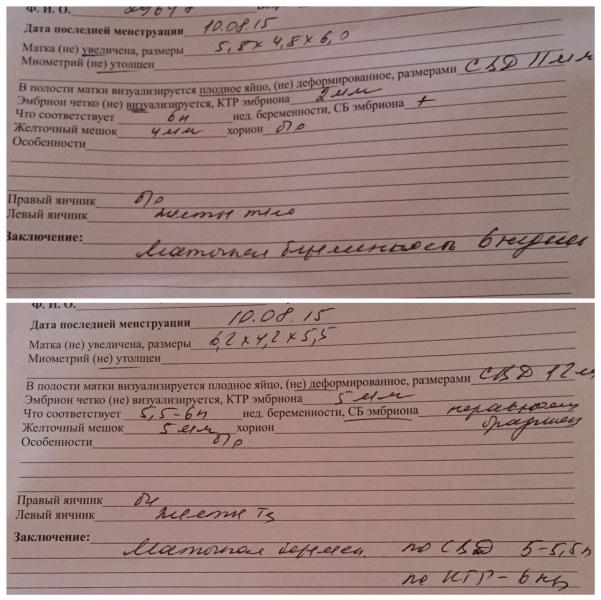 Ф. И. О.
Дата последней менструации 10.08.15
Матка (не) увеличена, размеры 5,8 х 4,8 х 6,0
Миометрий (не) утолщен
В полости матки визуализируется плодное яйцо, (не) деформированное, размерами СВД 11 мм
Эмбрион четко (не) визуализируется, КТР эмбриона 2 мм
Что соответствует 6н нед. беременности, СБ эмбриона +
Желточный мешок 4 мм хорион б/о
Особенности
Правый яичник б/о
Левый яичник желтое тело
Заключение:
Маточная беременность 6 недель
Ф. И. О.
Дата последней менструации 10.08.15
Матка (не) увеличена, размеры 6,2 х 4,2 х 5,5
Миометрий (не) утолщен
В полости матки визуализируется плодное яйцо, (не) деформированное, размерами СВД 12 м
Эмбрион четко (не) визуализируется, КТР эмбриона 5 мм
Что соответствует 5,5-6н нед. беременности, СБ эмбриона
Желточный мешок 5 мм хорион
Особенности б/о
Правый яичник
Левый яичник
Заключение:
Маточная беремен. по СВД 5-5,5н
по КТР - 6 н